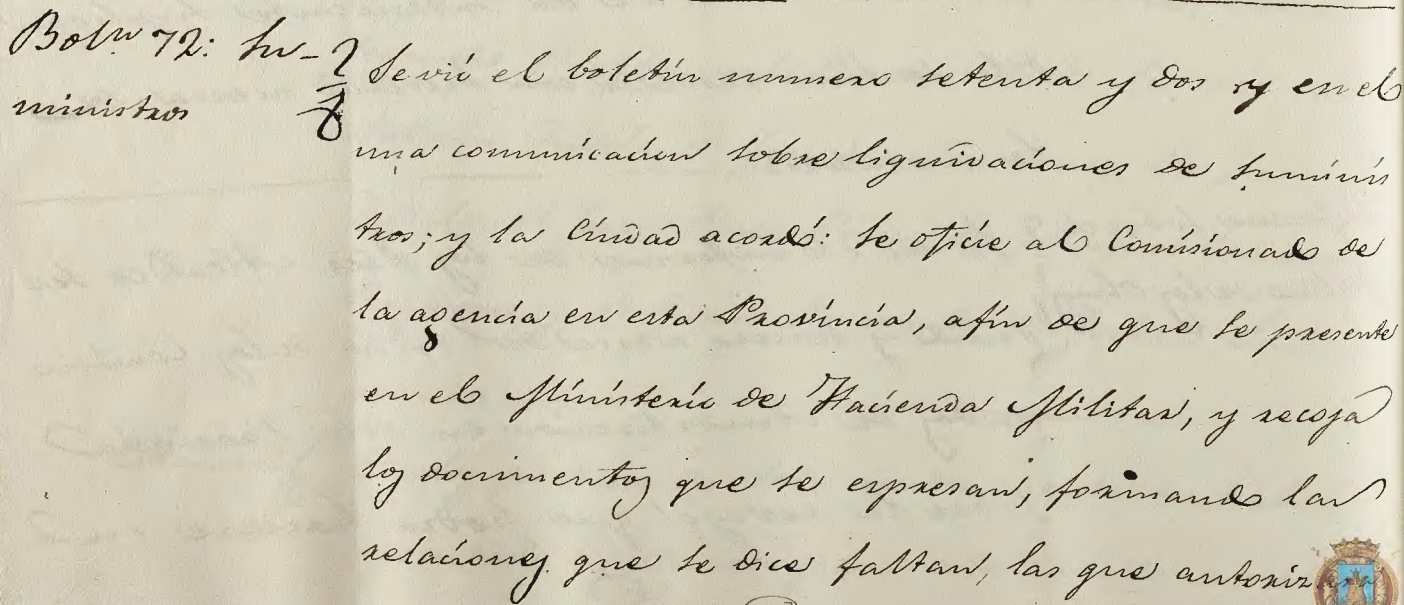 Boln. 72: Su-
ministros
Se vió el boletin numero setenta y dos y en el
una comunicacion sobre liquidaciones de suminis
tros; y la Ciudad acordó: se oficie al Comisionado de
la agencia en esta Provincia, afin de que se presente
en el Ministerio de Hacienda Militar, y recoja
los documentos que se espresan, formando las
relaciones que se dice faltan, las que autorizara